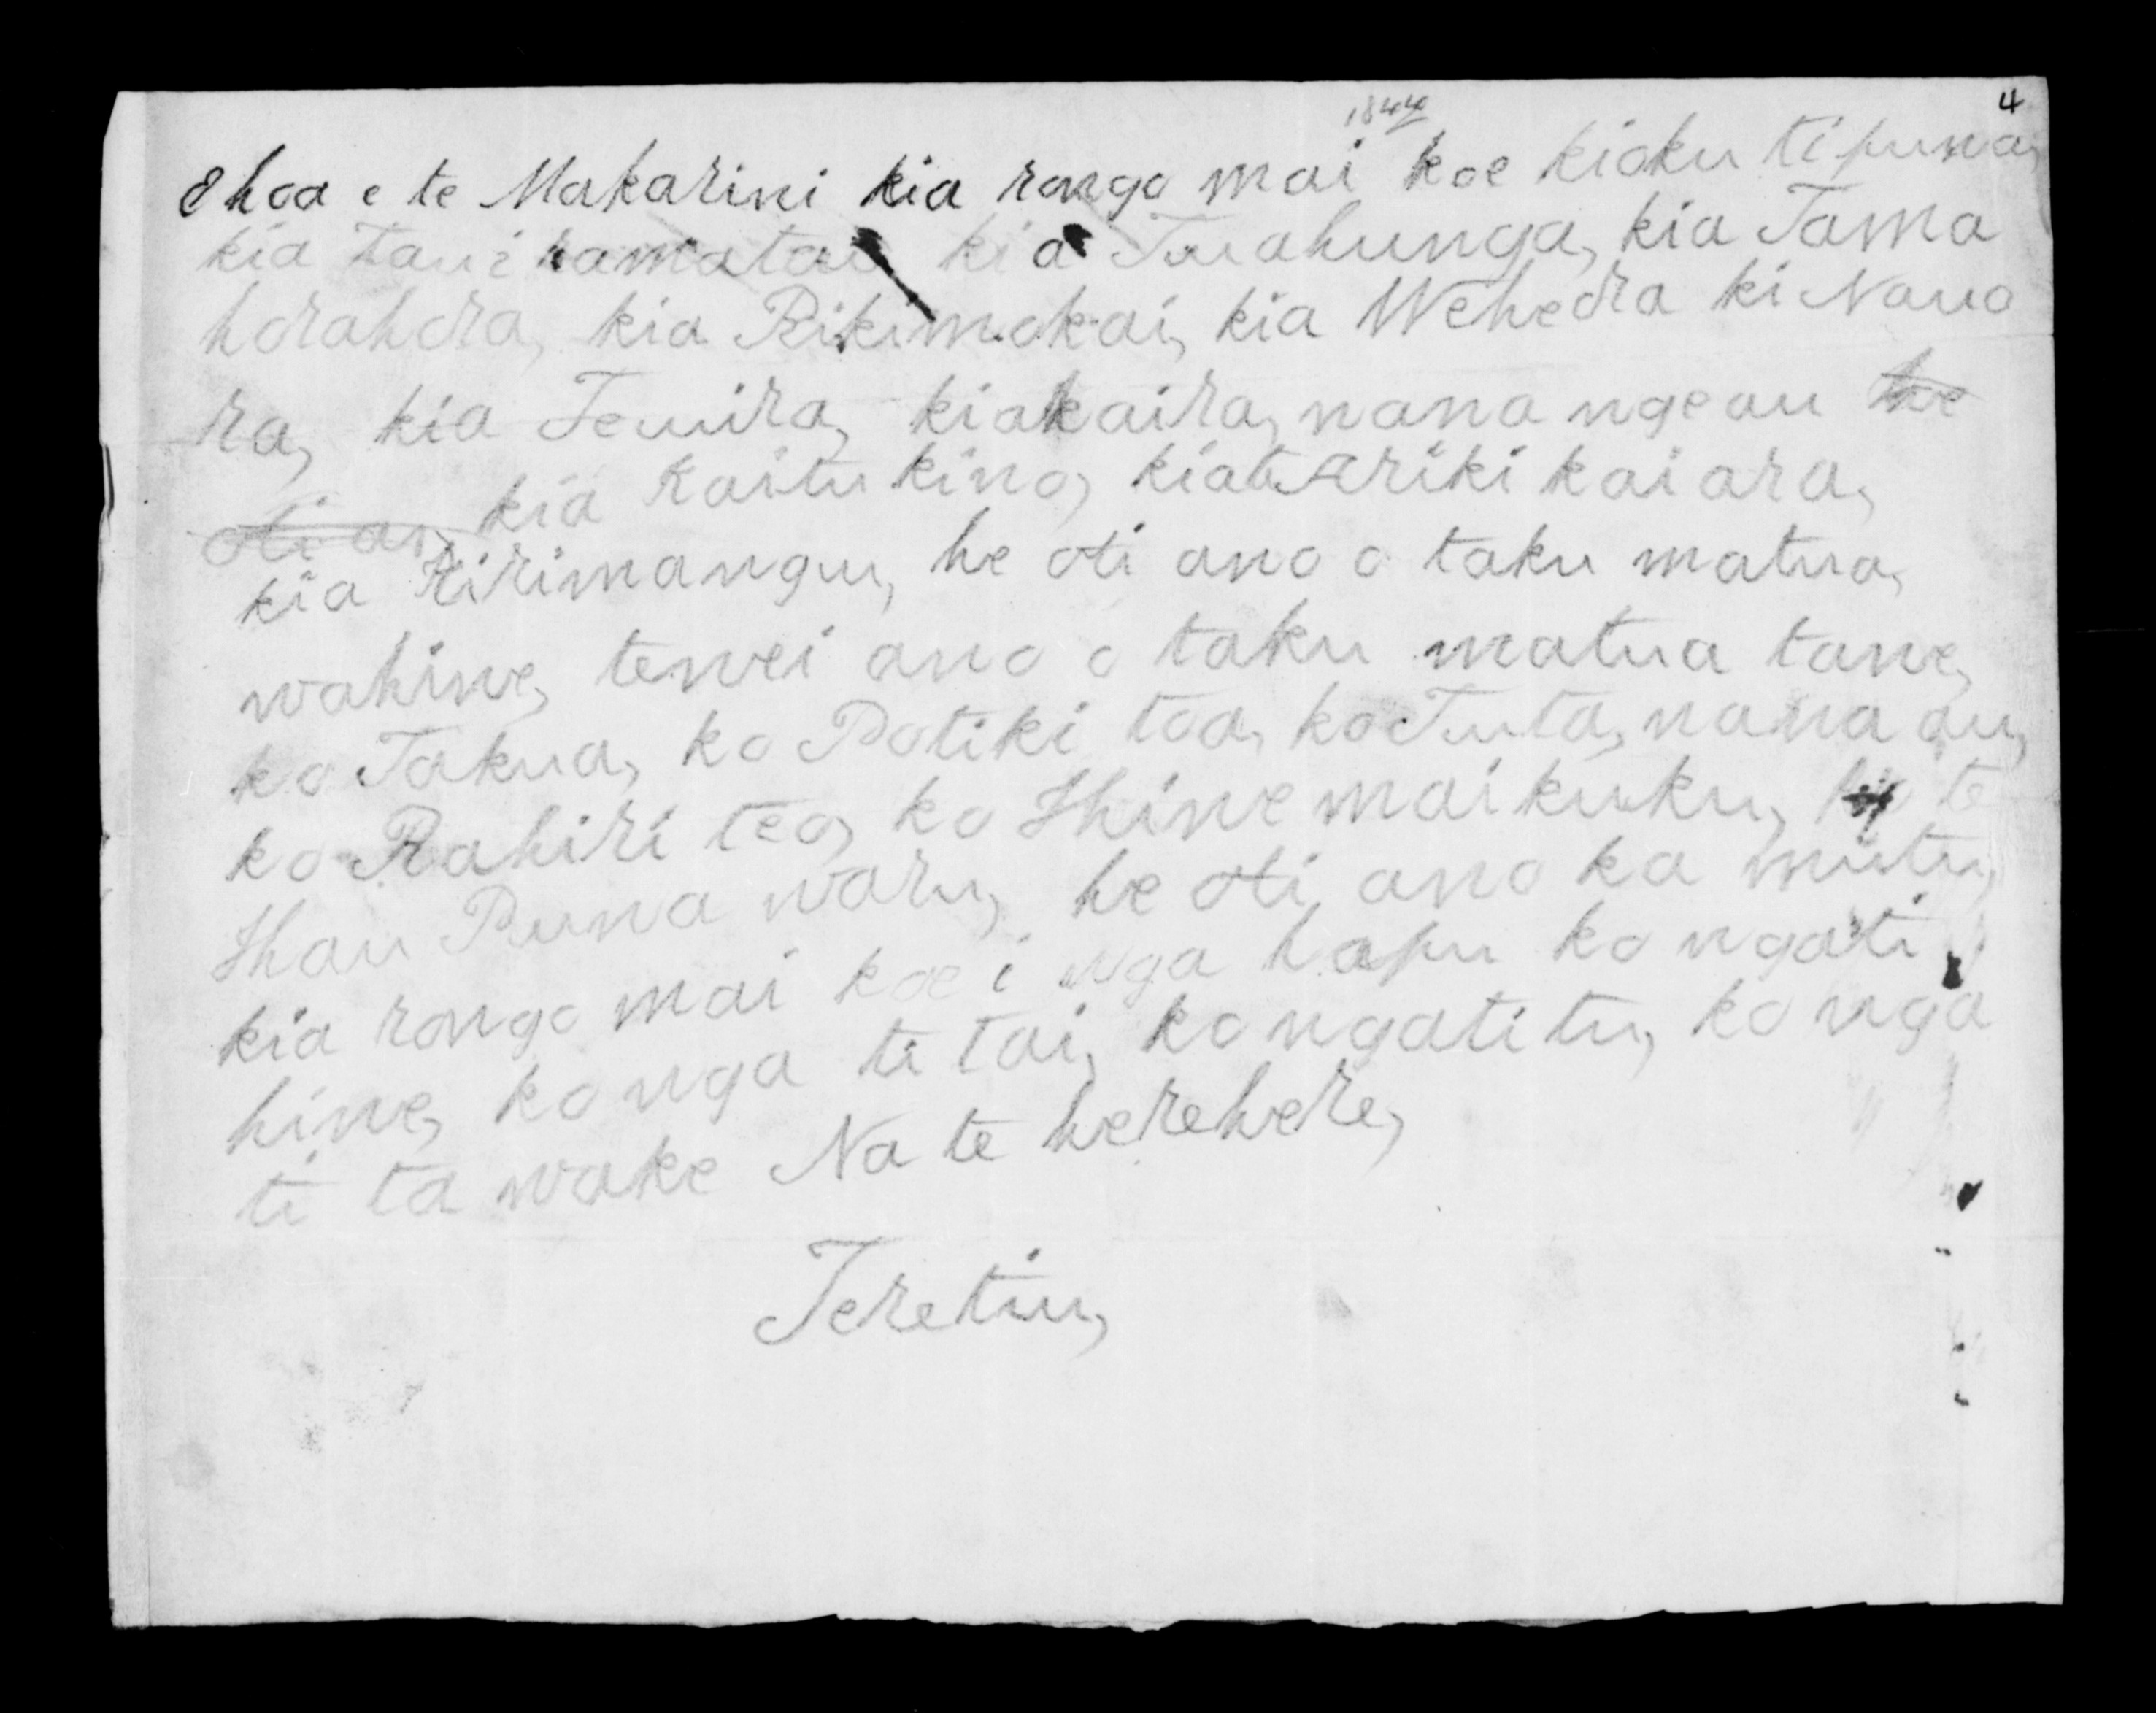 1844
4
E hoa e te Makarini kia rongo mai koe kioku tipuna,
kia Tauiramatau kia Tuiahunga, kia Tama
horahora, kia Rikimokai, kia Weheora ki Naua
ra, kia Temira, kiakaira, nana ngeau he
oti an, kia Kaitukino, kiate Ariki kai ara,
kia Kirimangu, he oti ano o taku matua,
wahine, tenei ano o taku matua tane,
ko Takua, ko Potiki toa, ko Tuta, nana au,
ko Rahiri teo, ko Hhinemaikuku, ko te
Hhau Puna waru, he oti ano ka mutu,
kia rongo mai koe i nga hapu ko ngati
hine, ko nga ti tai, ko ngatitu, ko nga
ti ta wake Na te herehere,
Teretiu,